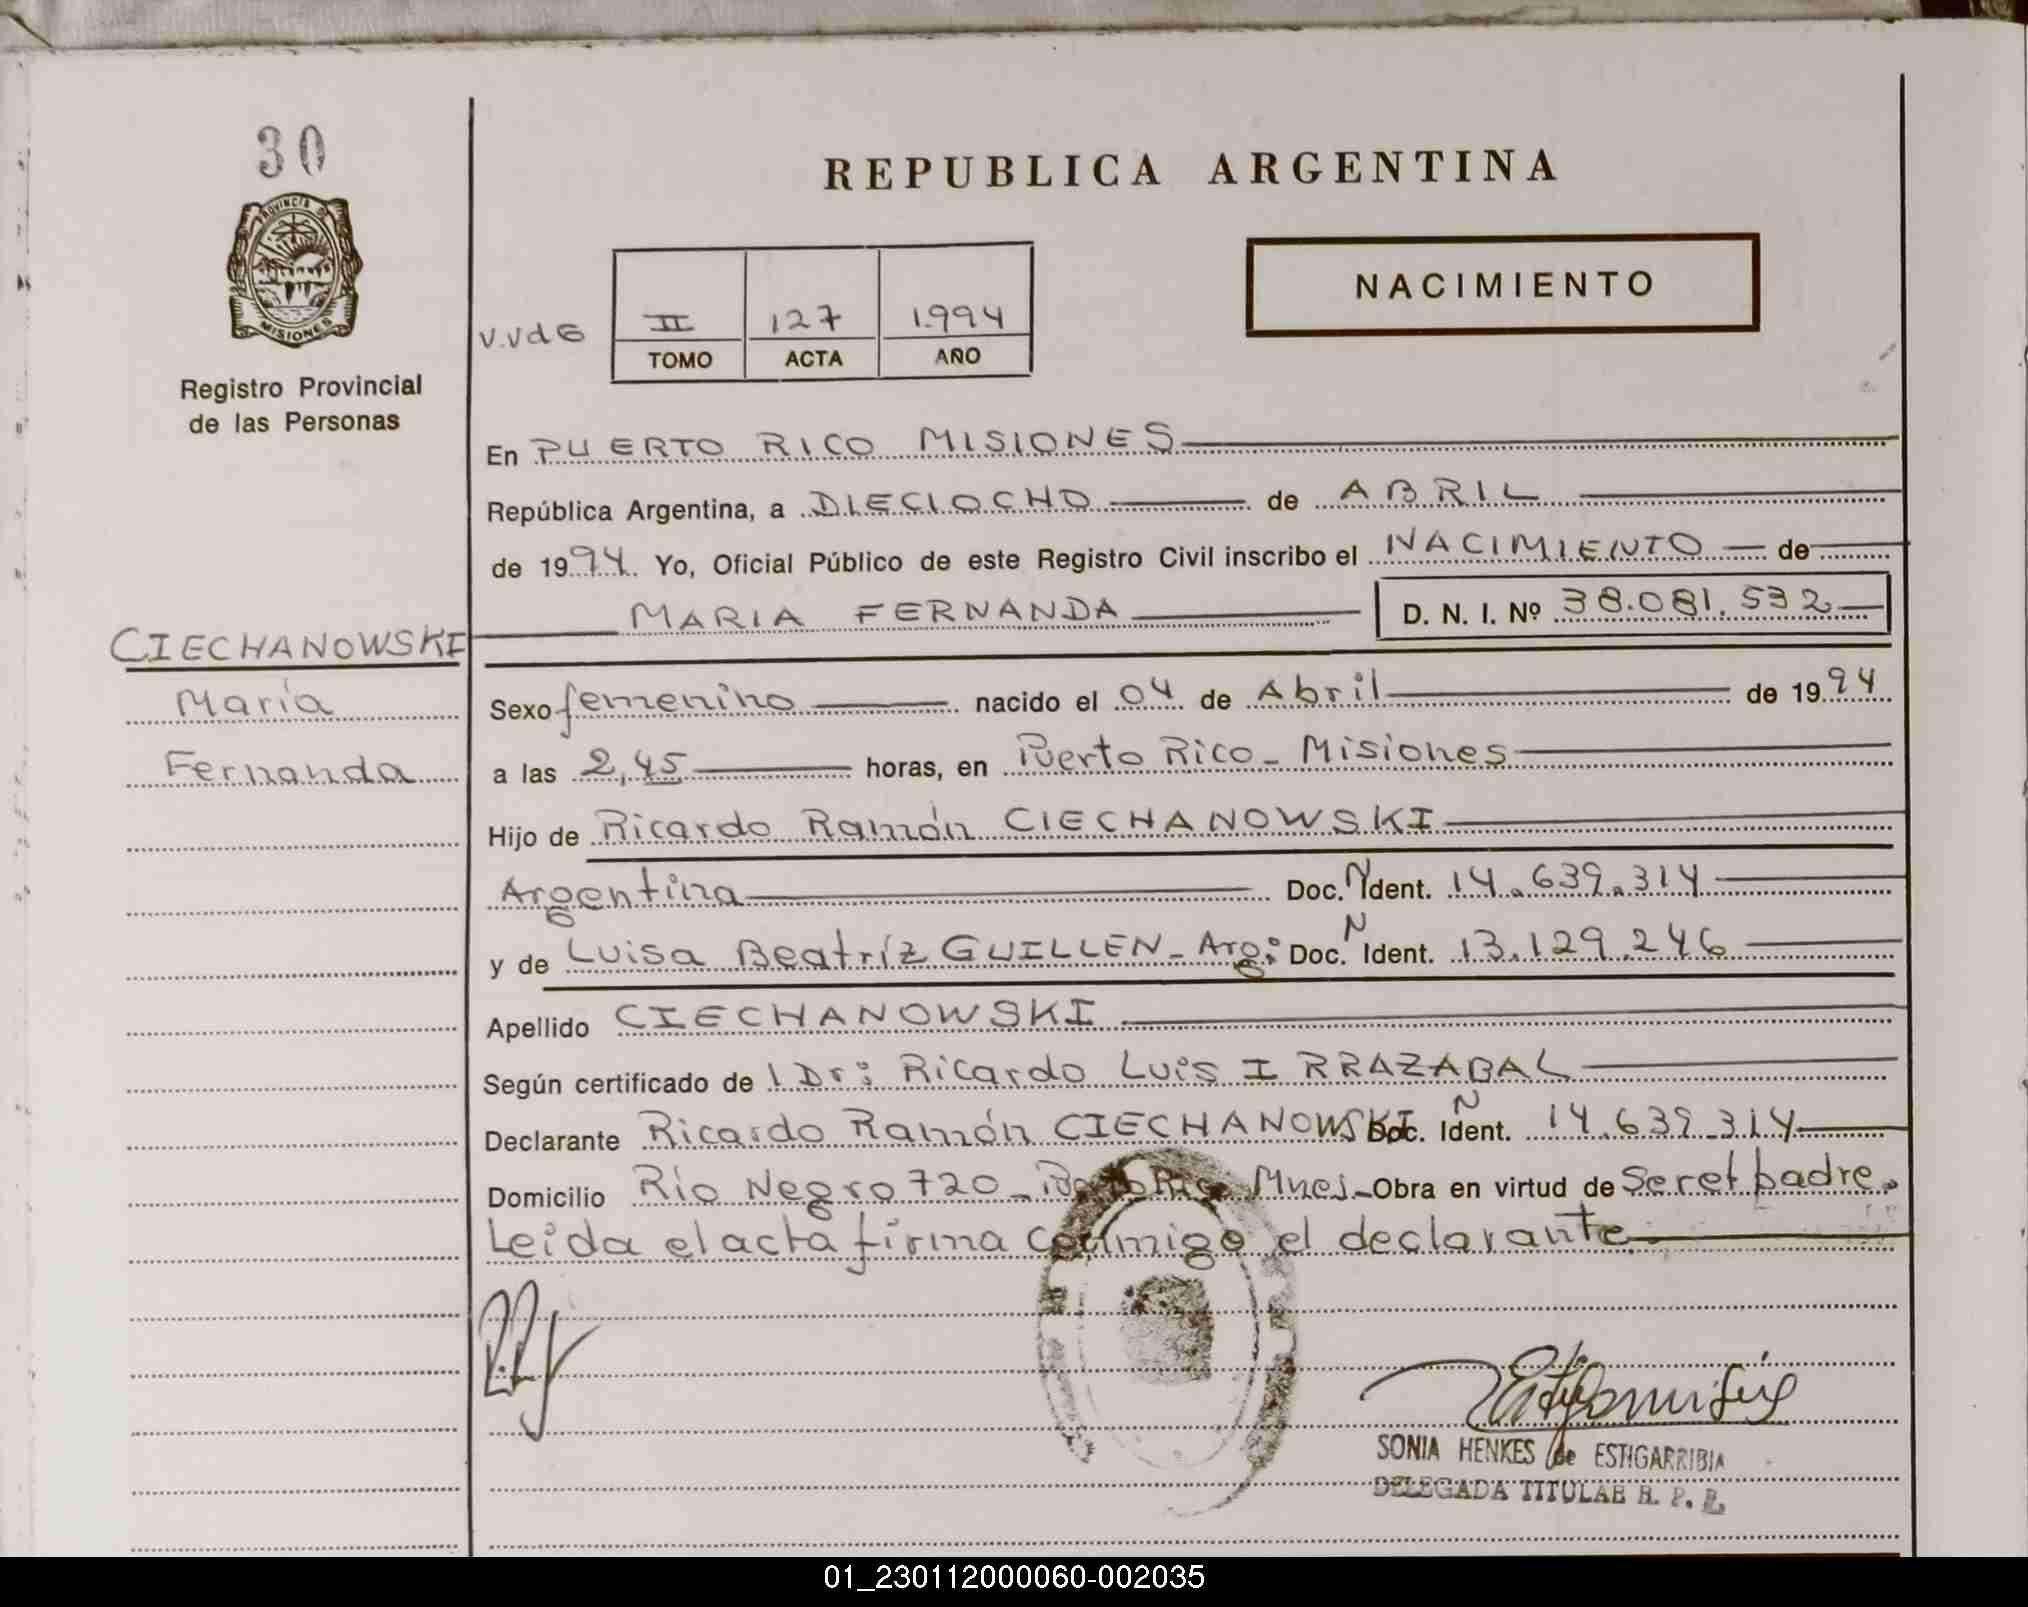 30
PROVINCIA DE
MISIONES
Registro Provincial
de las Personas
REPUBLICA ARGENTINA
NACIMIENTO
V.VdG
II 127 1.994
TOMO ACTA AÑO
En PUERTO RICO MISIONES
República Argentina, a DIECIOCHO de ABRIL
de 1994. Yo, Oficial Público de este Registro Civil inscribo el NACIMIENTO de
MARIA FERNANDA D. N. I. Nº 38.081.532
CIECHANOWSKI
María
Fernanda
Sexo femenino nacido el 04 de Abril de 1994
a las 2,45 horas, en Puerto Rico - Misiones
Hijo de Ricardo Ramón CIECHANOWSKI
Argentina Doc. N Ident. 14.639.314
y de Luisa Beatríz GUILLEN - Arg: Doc. N Ident. 13.129.246
Apellido CIECHANOWSKI
Según certificado de l Dr: Ricardo Luis IRRAZABAL
Declarante Ricardo Ramón CIECHANOWSKI Doc. N Ident. 14.639.314
Domicilio Río Negro 720 - Puerto Rico Mnes - Obra en virtud de Ser el padre.
Leida el acta firma conmigo el declarante
SONIA HENKES de ESTIGARRIBIA
DELEGADA TITULAR R. P. P.
01_230112000060-002035